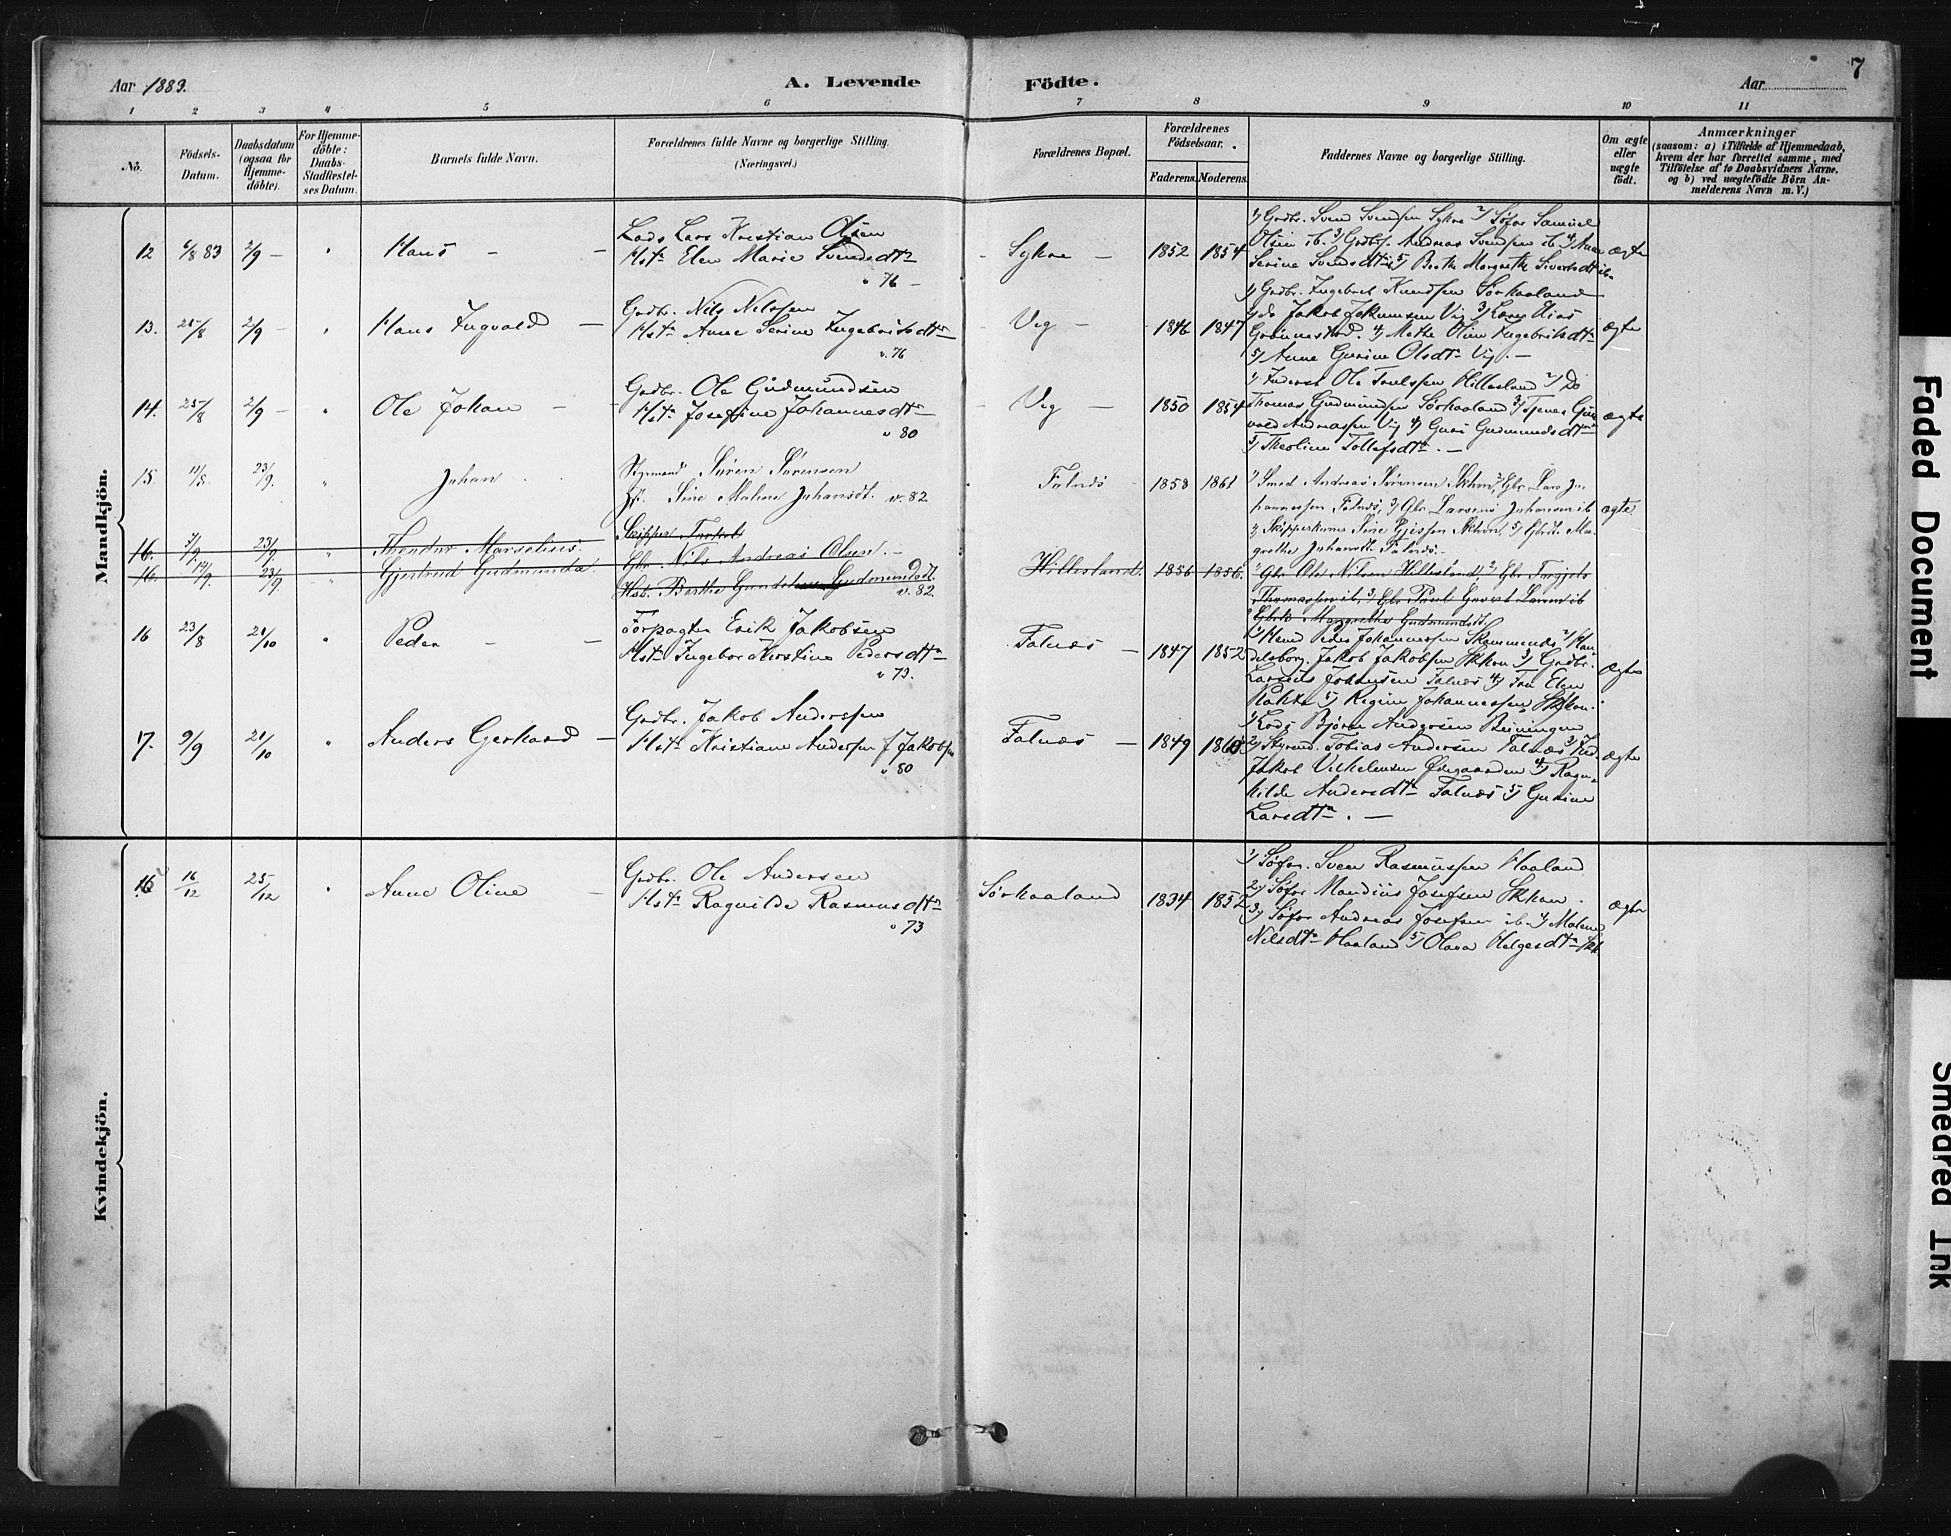 Aar 1883.
A. Levende
Födte.
Aar
7
1 2 3 4 5 6 7 8 9 10 11
No.
Födsels-
Datum.
Daabsdatum
(ogsaa for
Hjemme-
döbte).
For Hjemme-
döbte:
Daabs-
Stadfæstel-
ses Datum.
Barnets fulde Navn.
Forældrenes fulde Navne og borgerlige Stilling
(Næringsvei.)
Forældrenes Bopæl.
Forældrenes
Födselsaar.
Faderens. Moderens.
Faddernes Navne og borgerlige Stilling.
Om ægte
eller
uægte
födt.
Anmærkninger
(saasom: a) i Tilfælde af Hjemmedaab,
hvem der har forrettet samme, med
Tilföielse af to Daabsvidners Navne,
og b) ved uægtefödte Börn An-
melderens Navn m. V.)
Mandkjön.
12 6/8 83 2/9 - " Hans - -
Lods Lars Kristian Olsen
Hst. Elen Marie Svendsdtr
v 76 -
Sykre - 1852 1854
1) Grdbr. Svend Svendsen Sykre 2) Søfar Samuel
Olsen ib. 3) Grdbrs. Andreas Svendsen ib 4) Anne
Serine Svendsdtr 5) Berthe Margrethe Sivertsdtr ib
ægte
13. 25/8 2/9 - " Hans Ingvald -
Grdbr. Nils Nilssen
Hst. Anne Serine Ingebrigtsdtr
v. 76
Vig - 1846 1847
1) Grdbr. Ingebret Knudsen Sørhaaland
2) do Jakob Jokumsen Vig 3) Lærer Elias
Grønnestad. 4) Methe Oline Ingebrigtsdtr
5) Anne Gurine Olsdtr Vig. -
ægte
14. 25/8 2/9 - " Ole Johan -
Grdbr. Ole Gudmundsen
Hst. Josefine Johannesdtr
v 80
Vig - 1850 1854
Ole Hillesland 2) Do
Thomas Gudmundsen Sørhaaland 3) Tjener
Andreassen Vig 4) Guri Gudmundsdtr
5) Theoline Tollefsdtr. -
ægte
15. 11/8. 23/9. " Johan.
Styrmand Søren Sørensen
Hst. Sine Malene Johansdt. v. 82
Falnæs - 1858 1861
1) Smed Andreas Sørensen 2) Gbr. Lars Jo-
hannessen Falnæs, 3) Gbr. Larsens Johansen ib
4) Skipperkone Sine 5) Ma-
grethe Johansdt. Falnæs. -
ægte
16. 3/9 23/9 " Theodor Marselius.
Skipper
16. 14/9 23/9 " Gjertrud Gudmunda.
Gbr. Nils Andreas Olsen. -
Hst. Berthe Gudmundsdt.
v. 82.
Hillesland. 1856 1856.
1) Gbr. Ole Nilsen Hillesland, 2) Gbr.
Thomassen ib, 3) Gbr. Larsen ib
Margrethe Gudmundsdt.
16 23/8 21/10 " Peder - -
Forpagter Erik Jakobsen
Hst. Ingebor Kirstine Pedersdtr
v 73.
Falnæs - 1847 1852
1) Peder Johannessen 2) Han-
delsborg. Jakob Jakobsen 3) Grdbr.
Larsens Johansen Falnæs 4) Fru Elen
5) Regine Johannessen
ægte
17. 9/9 21/10 " Anders Gerhard -
Grdbr. Jakob Anderssen
Hst. Kristiane Andersen f. Jakobsen
v 80
Falnæs - 1849 1860
1) Lods Bjørn Andersen
2) Styrmd. Tobias Andersen Falnæs 3)
Jakob Vilhelmsen Østgaarden 4) Ragn-
hilde Andersdtr Falnæs 5) Gurine
Larsdtr. -
ægte
Kvindekjön.
16 16/12 25/12 " Anne Oline -
Grdbr. Ole Andersen
Hst. Ragnilde Rasmusdtr
v 73
Sørhaaland 1834 1852
1) Søfar. Sven Rasmussen Haaland
2) Søfar Mandius Josefsen
3) Søfar Andreas Josefsen ib. 4) Malene
Nilsdtr Haaland 5) Olava Helgesdtr
ægte
Faded Document
Smedred Ink